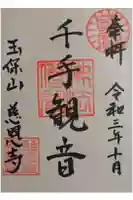 奉拝
令和三年十月
千手観音
玉保山
慈恩寺